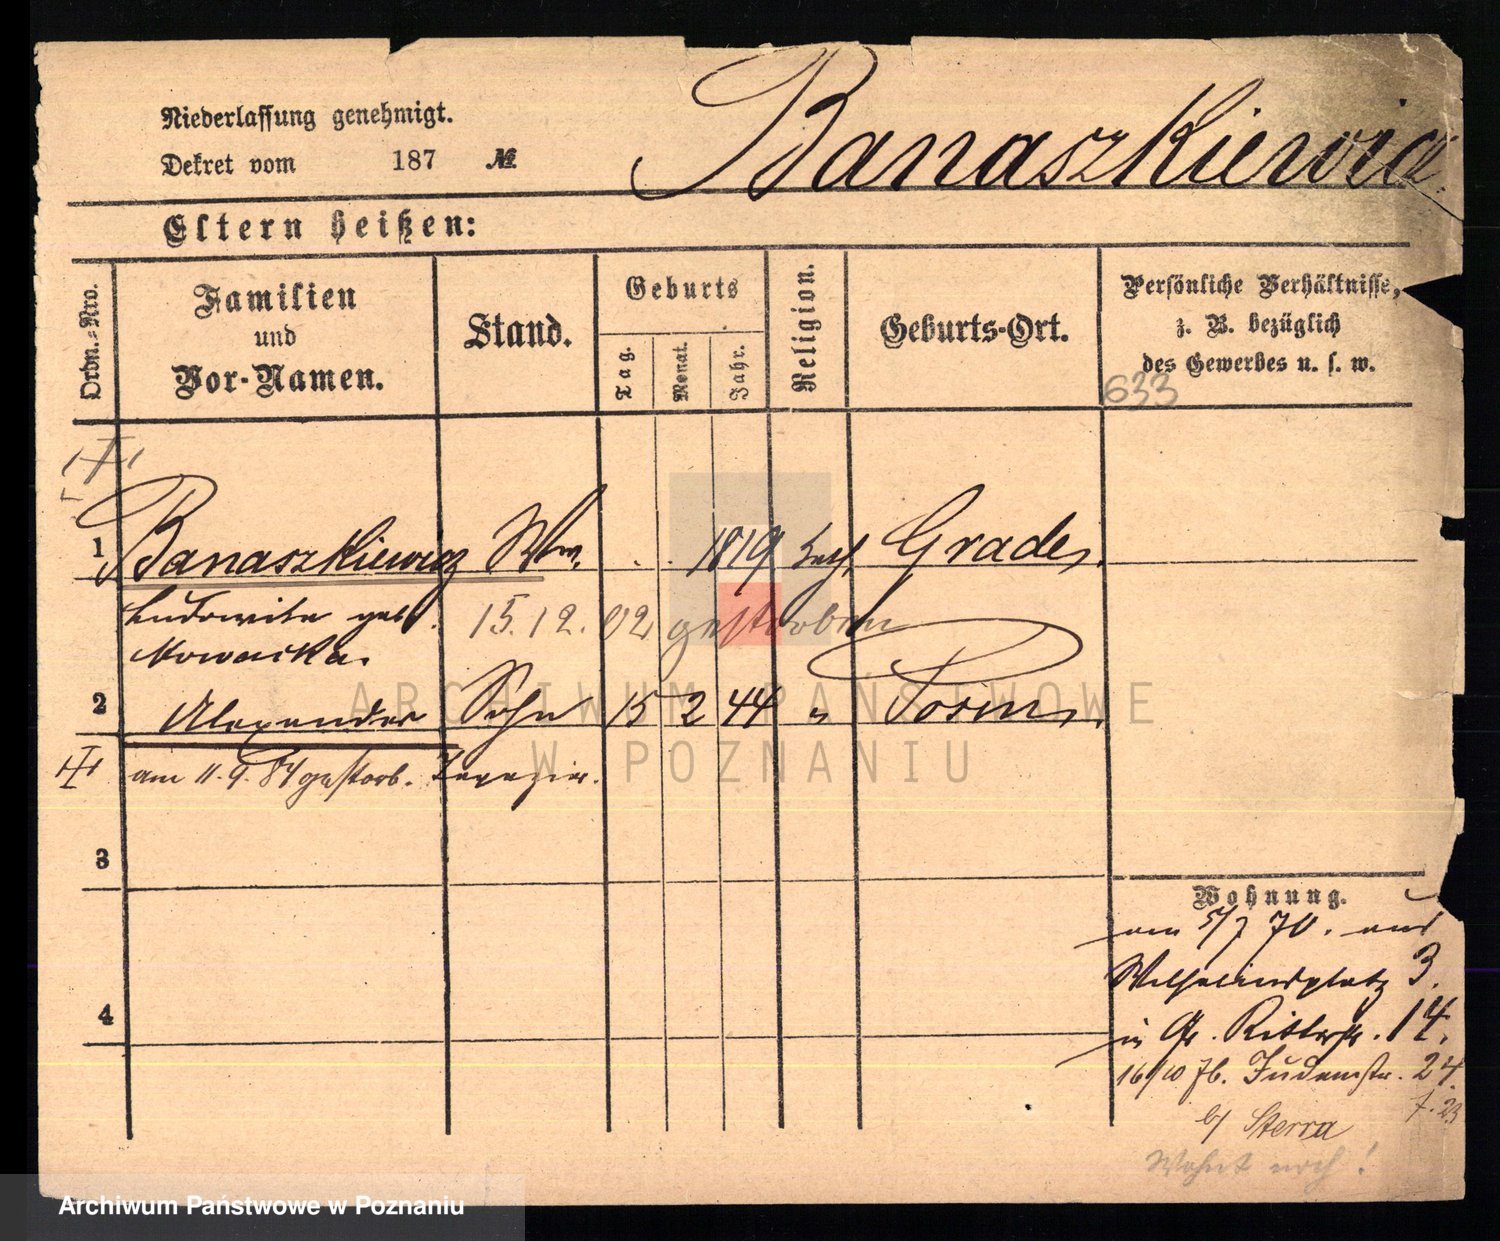 Niederlassung genehmigt.
Banaszkiewicz
Dekret vom 187 №
Eltern heißen:
Ordn.-Nro.
Familien
und
Vor-Namen.
Stand.
Geburts
Tag.
Monat.
Jahr.
Religion.
Geburts-Ort.
Persönliche Verhältnisse,
z. B. bezüglich
des Gewerbes u. s. w.
633
1 Banaszkiewicz Ww. 1819 kath. Grade
Ludowika geb. 15. 12. 02 gestorben
Nowacka.
2 Alexander Sohn 15 2 44 " Posen
am 11. 9. 84 gestorb. Tapezier.
3
4
Wohnung.
am 5/7 70. aus
Wilhelmsplatz 3.
in Gr. Ritterstr. 14.
16/10 76. Judenstr. 24.
7. 23
b/ Sterra
Wohnt noch!
ARCHIWUM PAŃSTWOWE
W POZNANIU
Archiwum Państwowe w Poznaniu